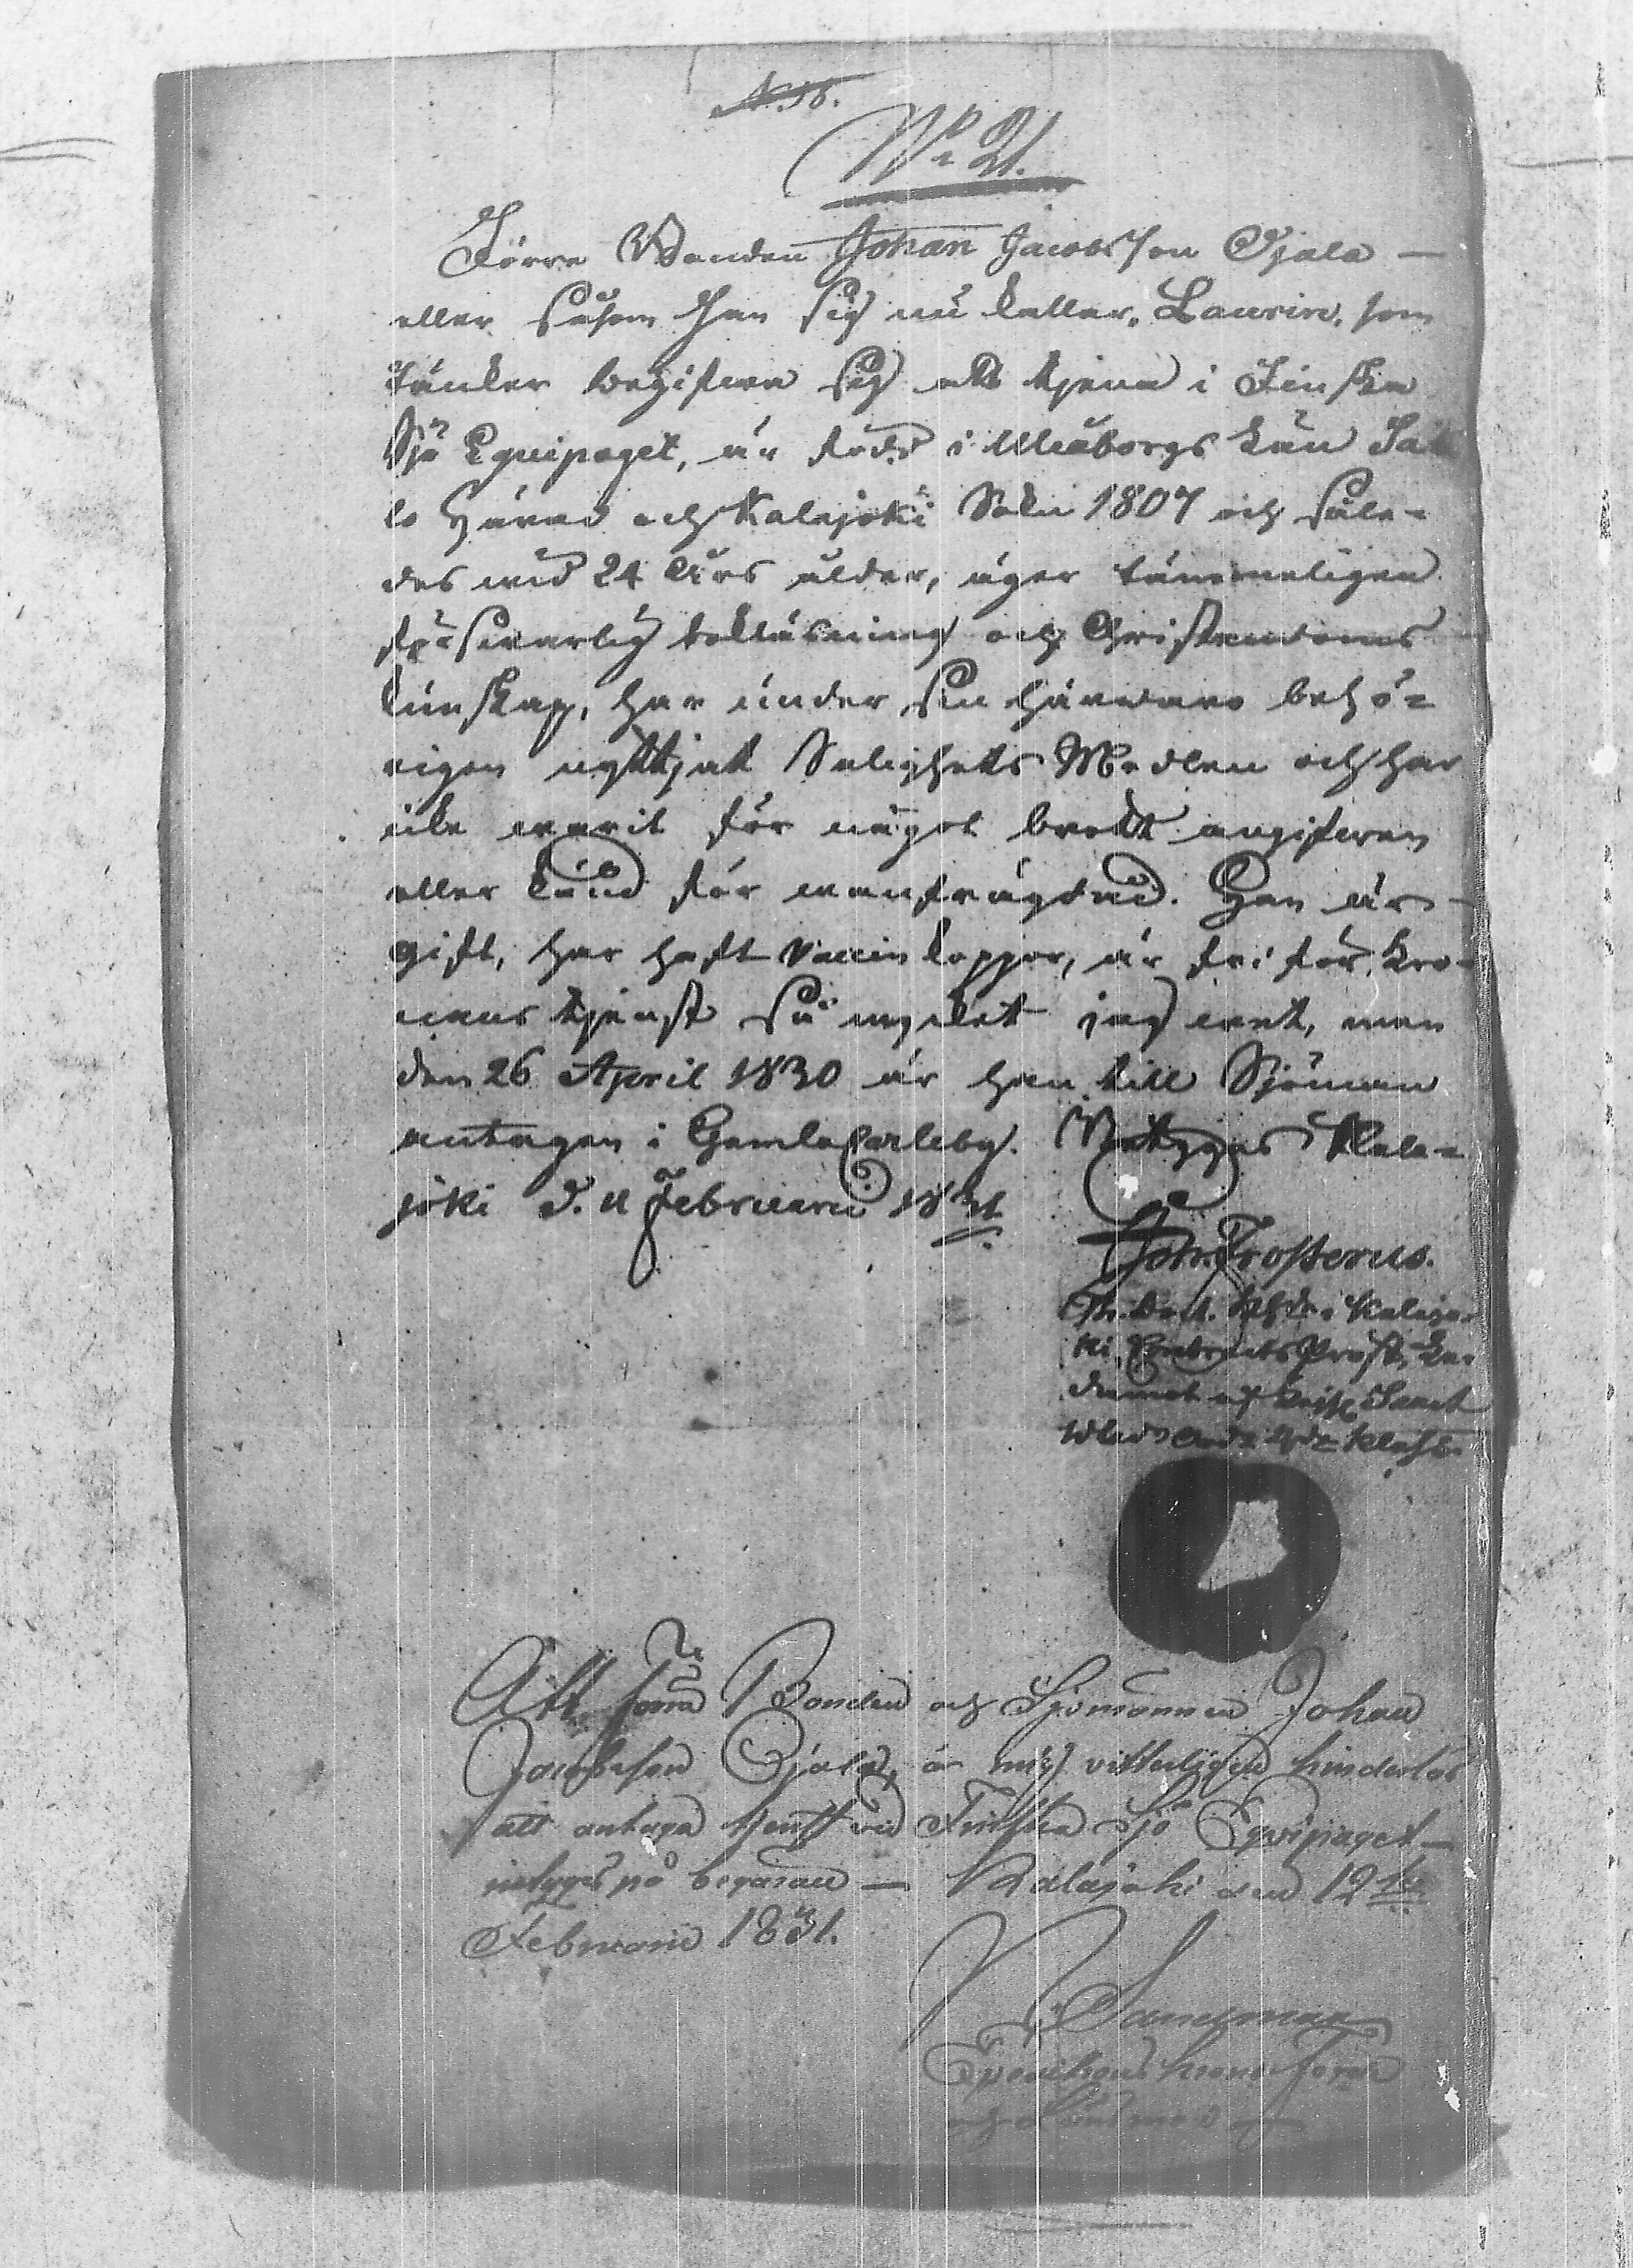 N. 36.
No 21.
Förre Bonden Johan Jacobsson Ojala —
eller såsom han sig nu kallar, Laurin, som
tänker begifwa sig att tjena i Finska
Sjö Equipaget, är född i Uleåborgs Län Sa
lo Härad och Kalajoki Sokn 1807 och såle=
des wid 24 Års ålder, äger tämmeligen
förswarlig bokläsning och Christendoms
kunskap, har under sin härwaro behö=
rigen nyttjat Salighets Medlen och har
icke warit för något brott angifwen
eller känd för wanfrägdad. Han är
gift, har haft Vaccin koppor, är fri för Kro-
nans tjenst så mycket jag wet, men
den 26 April 1830 är han till Sjöman
antagen i Gamlacarleby. Betygas Kala=
joki d. 11 Februarii 1831
Joh. Frosterus.
Th. Doct. Kh. i Kalajo-
ki, Contracts Prost, Le-
damot af Sanct
Wlad. Ord. Klass.
Att förra Bonden och Sjömannen Johan
Jacobsson Ojala, är mig vitterligen hinderlös
att antaga tjenst vid Finska Sjö Equipaget —
intygas på begäran — Kalajoki den 12te
Februarii 1831.